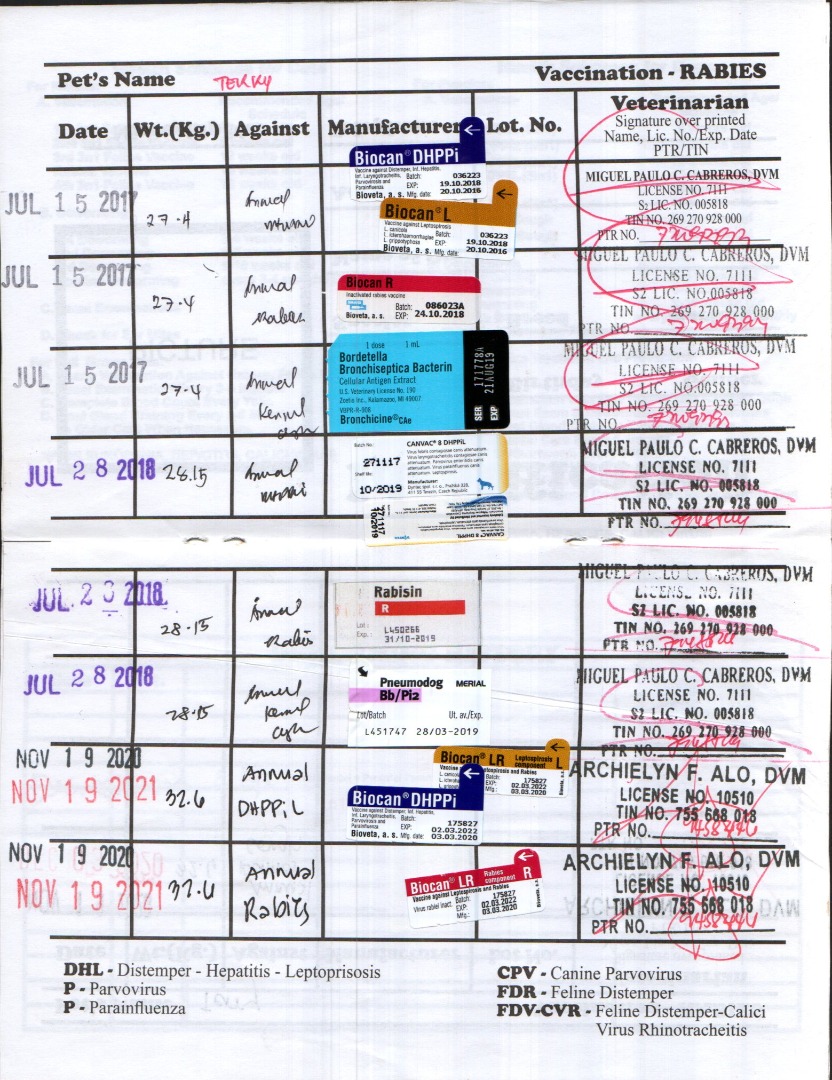 Pet's Name TERRY Vaccination - RABIES
Date Wt.(Kg.) Against Manufacturer Lot. No. Veterinarian
Signature over printed
Name, Lic. No./Exp. Date
PTR/TIN
JUL 15 2017
27.4
Annual
Biocan DHPPi
Vaccine against Distemper, Inf. Hepatitis,
Inf. Laryngotracheitis,
Parvovirosis and
Parainfluenza
Batch: 036223
EXP: 19.10.2018
Bioveta, a. s. Mfg. date: 20.10.2016
Biocan L
Vaccine against Leptospirosis
L. canicola
L. icterohaemorrhagiae
L. grippotyphosa
Batch: 036223
EXP: 19.10.2018
Bioveta, a. s. Mfg. date: 20.10.2016
MIGUEL PAULO C. CABREROS, DVM
LICENSE NO. 7111
S2 LIC. NO. 005818
TIN NO. 269 270 928 000
PTR NO.
JUL 15 2017
27.4
Annual
Rabies
Biocan R
Inactivated rabies vaccine
Batch: 086023A
Bioveta, a. s. EXP: 24.10.2018
MIGUEL PAULO C. CABREROS, DVM
LICENSE NO. 7111
S2 LIC. NO.005818
TIN NO. 269 270 928 000
PTR NO.
JUL 15 2017
27.4
Annual
Kennel
cough
1 dose 1 mL
Bordetella
Bronchiseptica Bacterin
Cellular Antigen Extract
U.S. Veterinary License No. 190
Zoetis Inc., Kalamazoo, MI 49007
VBPR-R-908
Bronchicine CAe
SER 171778A
EXP 21AUG19
MIGUEL PAULO C. CABREROS, DVM
LICENSE NO. 7111
S2 LIC. NO.005818
TIN NO. 269 270 928 000
PTR NO.
JUL 28 2018
28.15
Annual
Batch No.: CANVAC 8 DHPPiL
271117
Shelf life:
10/2019
Manufacturer:
271117
10/2019
CANVAC 8 DHPPiL
MIGUEL PAULO C. CABREROS, DVM
LICENSE NO. 7111
S2 LIC. NO. 005818
TIN NO. 269 270 928 000
PTR NO.
JUL 28 2018
28.15
Annual
Rabies
Rabisin
R
Lot : L450266
Exp. : 31/10-2019
MIGUEL PAULO C. CABREROS, DVM
LICENSE NO. 7111
S2 LIC. NO. 005818
TIN NO. 269 270 928 000
PTR NO.
JUL 28 2018
28.15
Annual
Kennel
cough
Pneumodog MERIAL
Bb/Pi2
Lot/Batch Ut. av./Exp.
L451747 28/03-2019
MIGUEL PAULO C. CABREROS, DVM
LICENSE NO. 7111
S2 LIC. NO. 005818
TIN NO. 269 270 928 000
PTR NO.
NOV 19 2020
NOV 19 2021
32.6
Annual
DHPPiL
Biocan LR Leptospirosis component L
Vaccine against Leptospirosis and Rabies
Batch: 175827
EXP: 02.03.2022
Mfg.: 03.03.2020
Biocan DHPPi
Vaccine against Distemper, Inf. Hepatitis,
Inf. Laryngotracheitis,
Parvovirosis and
Parainfluenza
Batch: 175827
EXP: 02.03.2022
Bioveta, a. s. Mfg. date: 03.03.2020
ARCHIELYN F. ALO, DVM
LICENSE NO. 10510
TIN NO. 755 668 018
PTR NO.
NOV 19 2020
NOV 19 2021
32.6
Annual
Rabies
Biocan LR Rabies component R
Vaccine against Leptospirosis and Rabies
Virus rabiei inact.
Batch: 175827
EXP: 02.03.2022
Mfg.: 03.03.2020
ARCHIELYN F. ALO, DVM
LICENSE NO. 10510
TIN NO. 755 668 018
PTR NO.
DHL - Distemper - Hepatitis - Leptoprisosis
P - Parvovirus
P - Parainfluenza
CPV - Canine Parvovirus
FDR - Feline Distemper
FDV-CVR - Feline Distemper-Calici
Virus Rhinotracheitis